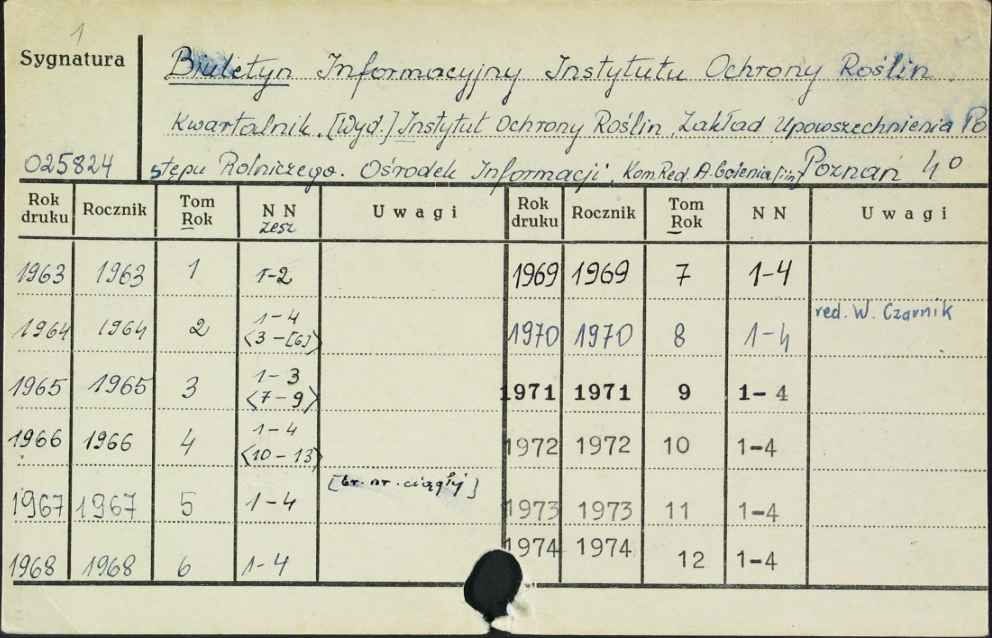 1
Sygnatura
Biuletyn Informacyjny Instytutu Ochrony Roślin.
Kwartalnik. [Wyd.] Instytut Ochrony Roślin, Zakład Upowszechnienia Po
025824 stępu Rolniczego. Ośrodek Informacji, Kom Red. A. Golenia [in] Poznań 4°
Rok druku Rocznik Tom Rok N N zesz Uwagi Rok druku Rocznik Tom Rok N N Uwagi
1963 1963 1 1-2 1969 1969 7 1-4
1964 1964 2 1-4 <3-[6]> 1970 1970 8 1-4 red. W. Czarnik
1965 1965 3 1-3 <7-9> 1971 1971 9 1-4
1966 1966 4 1-4 <10-13> 1972 1972 10 1-4
1967 1967 5 1-4 [br. nr. ciągły] 1973 1973 11 1-4
1968 1968 6 1-4 1974 1974 12 1-4